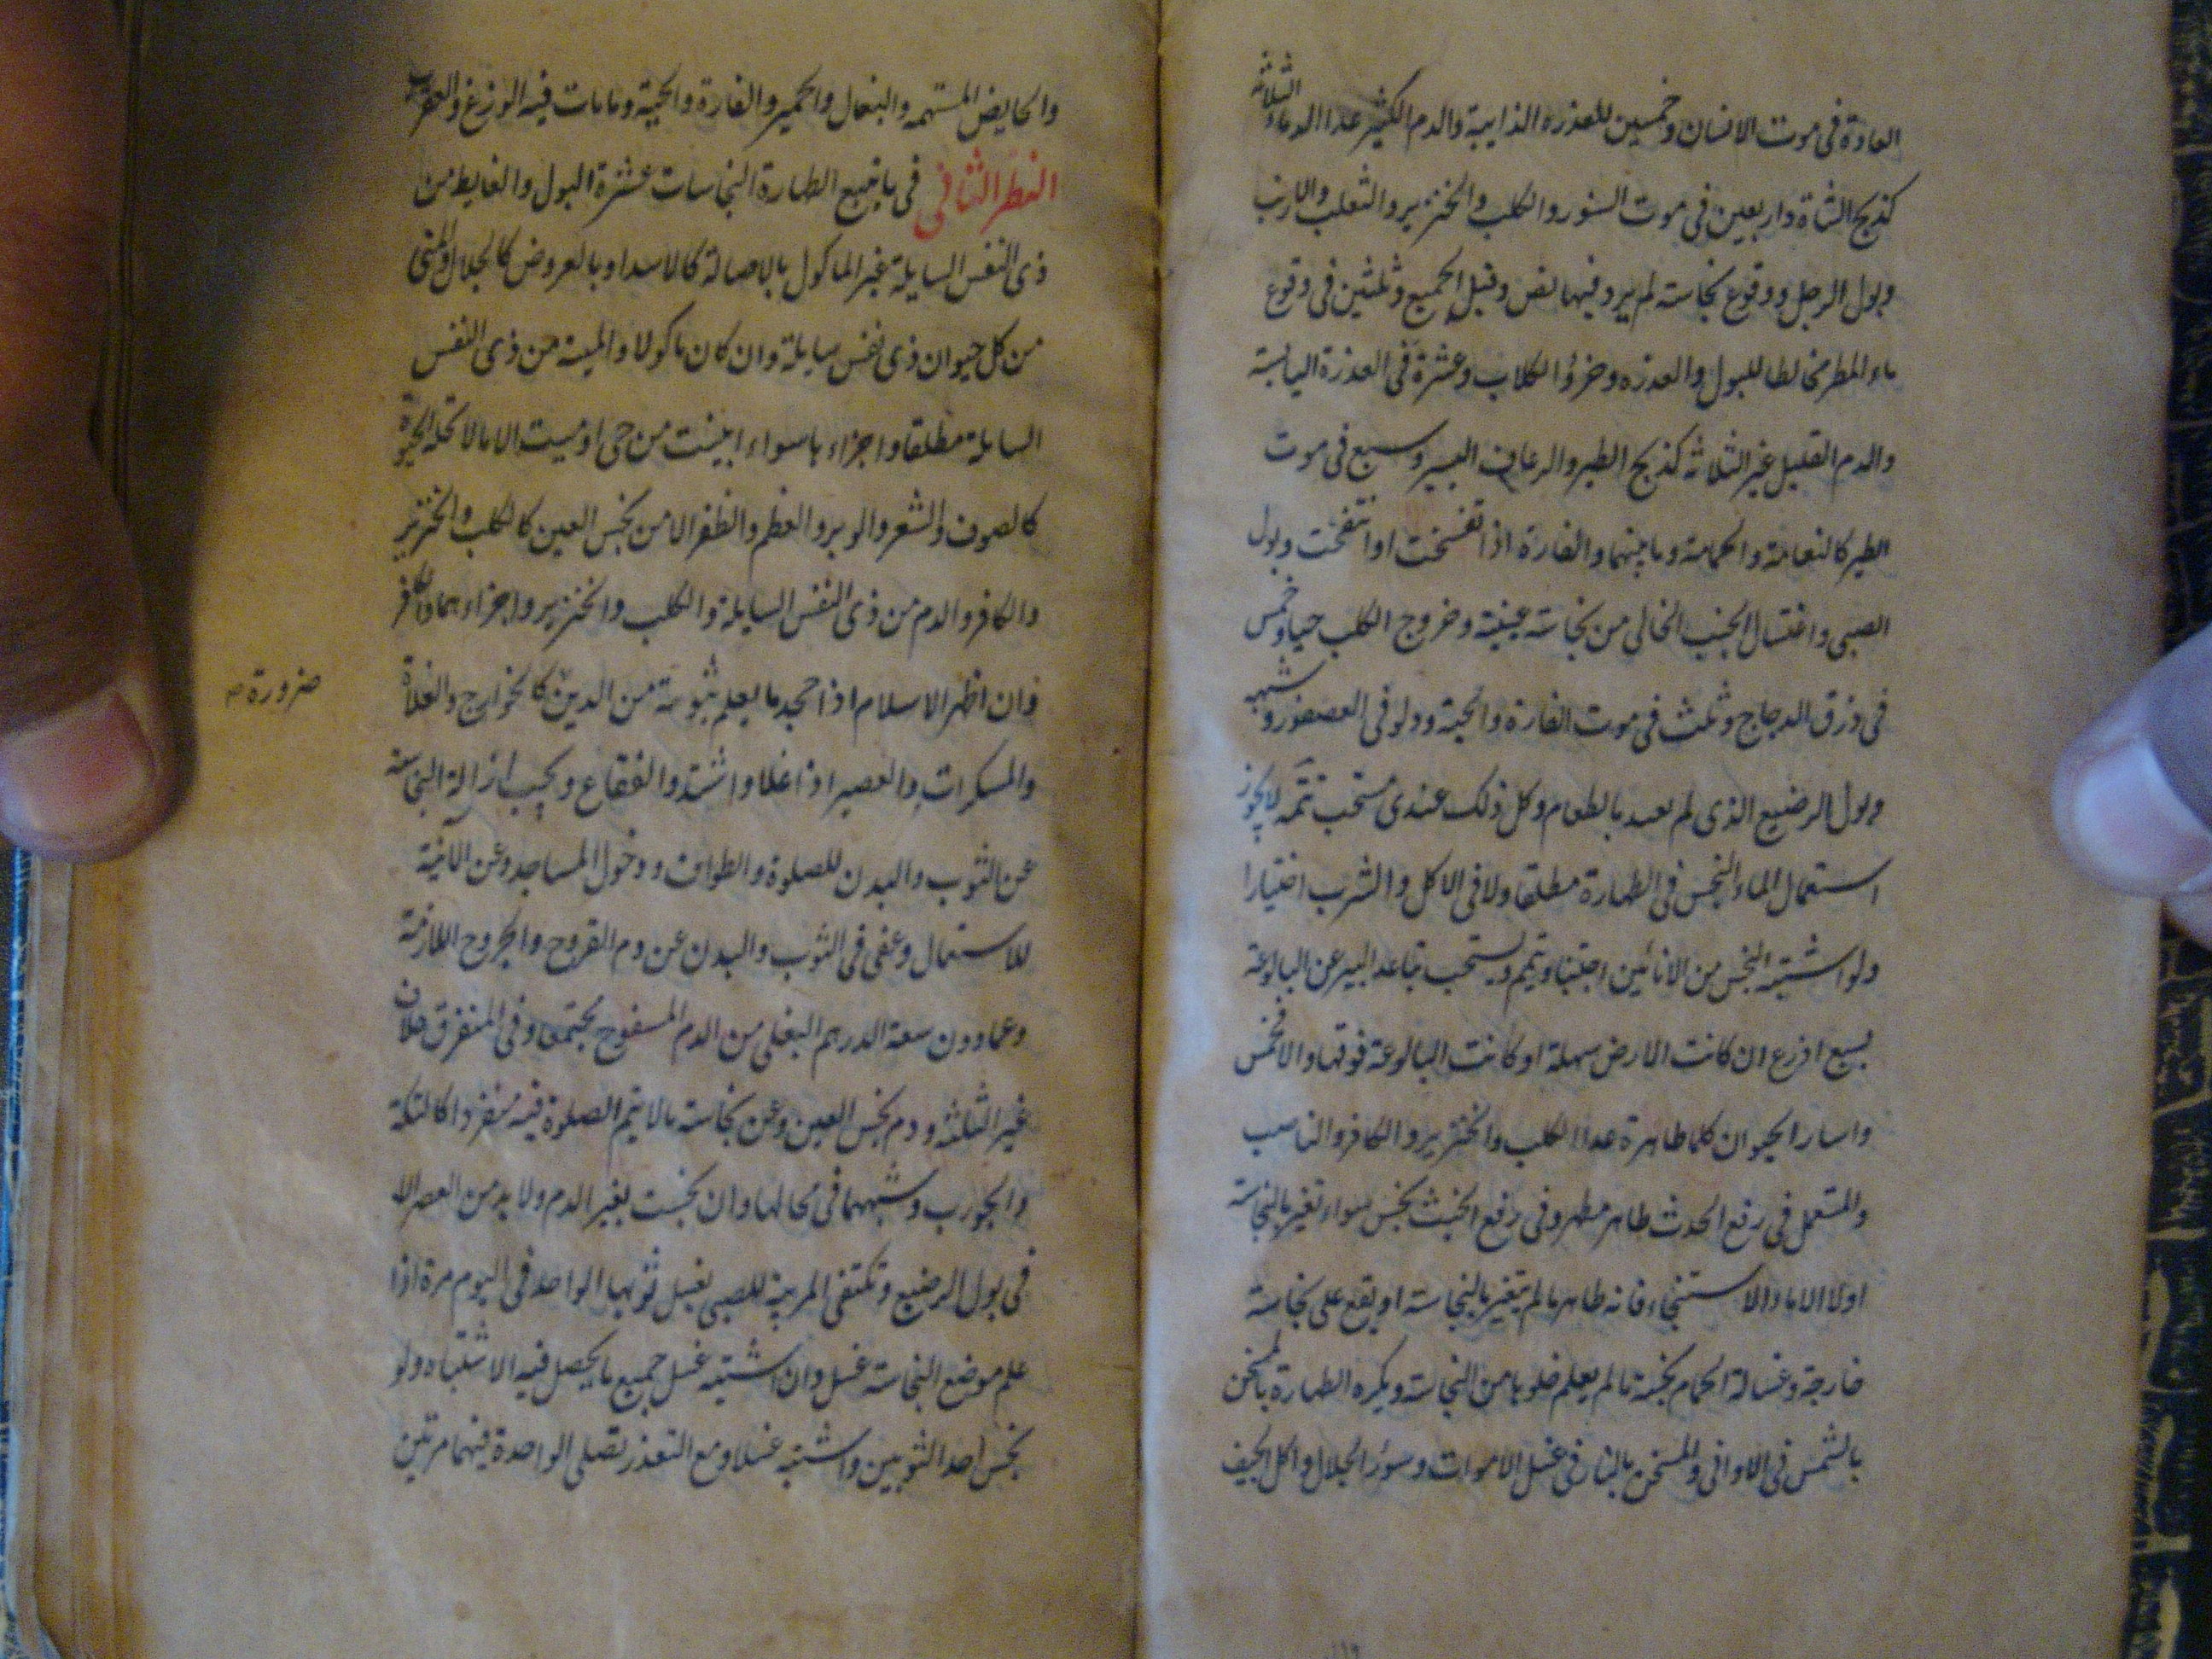 العادة فى موت الانسان وخمسين للعذره الذايبة والدم الكثير عدا الدماء الثلاثة
كذبح الشاة واربعين فى موت السنور والكلب والخنزير والثعلب والارنب
وبول الرجل ووقوع نجاسته لم يرد فيها نص وقيل الجميع وثلثين فى وقوع
ماء المطر مخالطا للبول والعذره وخرؤ الكلاب وعشرة فى العذرة اليابسة
والدم القليل غير الثلاثة كذبح الطير والرعاف اليسير وسبع فى موت
الطير كالنعامة والحمامة وما بينهما والفارة اذا تفسخت او انتفخت وبول
الصبى واغتسال الجنب الخالى من نجاسته عينية وخروج الكلب حيا وخمس
فى ذرق الدجاج وثلث فى موت الفارة والحية ودلو فى العصفور وشبهه
وبول الرضيع الذى لم بالطعام وكل ذلك عندى مستحب تتمه لا يجوز
استعمال الماء النجس فى الطهارة مطلقا ولا فى الاكل والشرب اختيارا
ولو اشتبه النجس من الانائين اجتنبا وتيمم ويستحب تباعد البير عن البالوعة
بسبع اذرع ان كانت الارض سهلة او كانت البالوعة فوقها والا فخمس
واسار الحيوان كلها طاهرة عدا الكلب والخنزير والكافر والناصب
والمستعمل فى رفع الحدث طاهر مطهر وفى رفع الخبث نجس سواء تغير بالنجاسة
اولا الا ماء الاستنجاء فانه طاهر ما لم يتغير بالنجاسة او يقع على نجاسة
خارجة وغسالة الحمام نجسة ما لم يعلم خلوها من النجاسة ويكره الطهارة بالمسخن
بالشمس فى الاوانى والمسخن بالنار فى غسل الاموات وسؤر الجلال واكل الجيف
والحايض المتهمه والبغال والحمير والفارة والحية وما مات فيه الوزغ والعقرب
النظر الثانى فى ما يتبع الطهارة النجاسات عشرة البول والغايط من
ذى النفس السايلة غير الماكول بالاصالة كالاسد او بالعروض كالجلال والمنى
من كل حيوان ذى نفس سايلة وان كان ماكولا والميتة من ذى النفس
السايلة مطلقا واجزاءها سواء ابينت من حى او ميت الا ما لا تحله الحيوة
كالصوف والشعر والوبر والعظم والظفر الا من نجس العين كالكلب والخنزير
والكافر والدم من ذى النفس السايلة والكلب والخنزير واجزاءهما والكافر
وان اظهر الاسلام اذا جحد ما يعلم ثبوته من الدين كالخوارج والغلاة
ضرورة
والمسكرات والعصير اذا غلا واشتد والفقاع ويجب ازالة النجاسة
عن الثوب والبدن للصلوة والطواف ودخول المساجد وعن الآنية
للاستعمال وعفى فى الثوب والبدن عن دم القروح والجروح اللازمة
وعما دون سعة الدرهم البغلى من الدم المسفوح مجتمعا وفى المتفرق خلاف
غير الثلثة ودم نجس العين وعن نجاسة ما لا يتم الصلوة فيه منفردا كالتكة
والجورب وشبههما فى محالها وان نجست بغير الدم ولا بد من العصر الا
فى بول الرضيع وتكتفى المربية للصبى بغسل ثوبها الواحد فى اليوم مرة اذا
علم موضع النجاسة غسل وان اشتبه غسل جميع ما يحصل فيه الاشتباه ولو
نجس احد الثوبين واشتبه غسلا ومع التعذر تصلى الواحدة فيهما مرتين